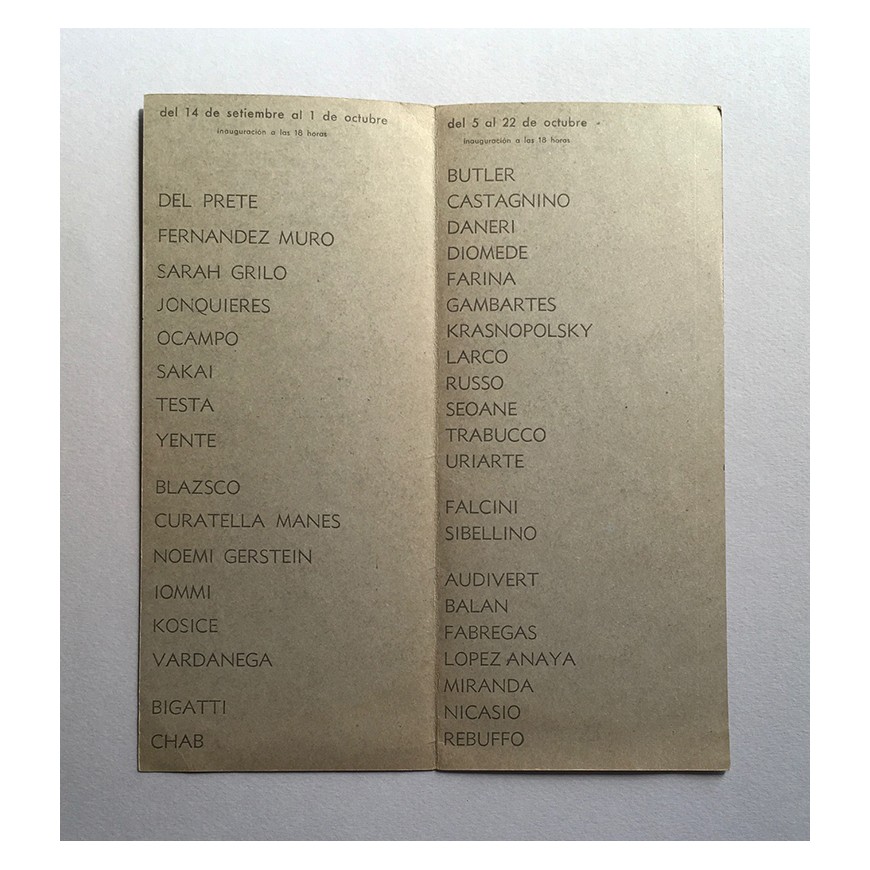 del 14 de setiembre al 1 de octubre
inauguración a las 18 horas
DEL PRETE
FERNANDEZ MURO
SARAH GRILO
JONQUIERES
OCAMPO
SAKAI
TESTA
YENTE
BLAZSCO
CURATELLA MANES
NOEMI GERSTEIN
IOMMI
KOSICE
VARDANEGA
BIGATTI
CHAB
del 5 al 22 de octubre
inauguración a las 18 horas
BUTLER
CASTAGNINO
DANERI
DIOMEDE
FARINA
GAMBARTES
KRASNOPOLSKY
LARCO
RUSSO
SEOANE
TRABUCCO
URIARTE
FALCINI
SIBELLINO
AUDIVERT
BALAN
FABREGAS
LOPEZ ANAYA
MIRANDA
NICASIO
REBUFFO